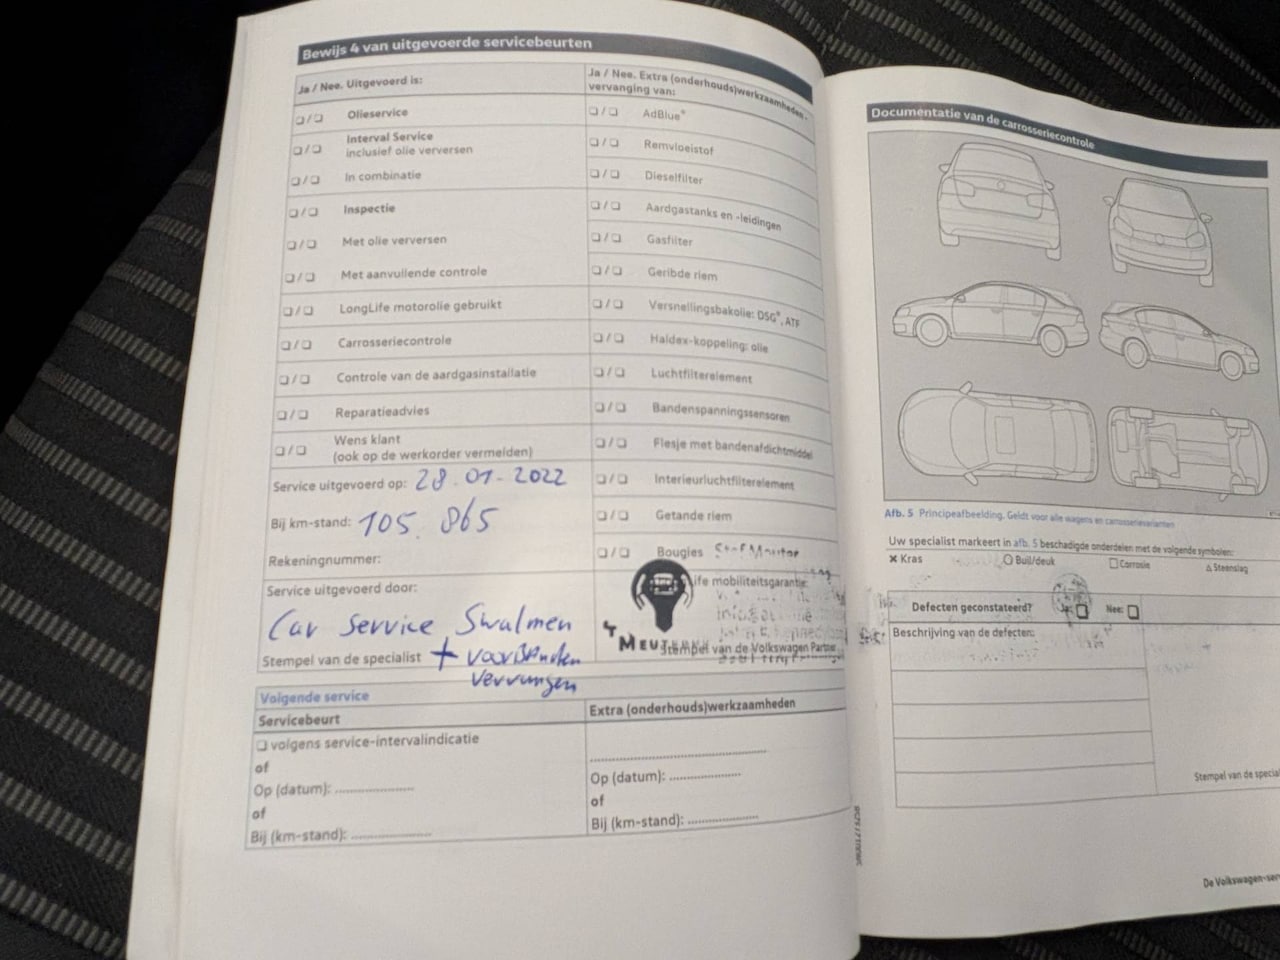 Bewijs 4 van uitgevoerde servicebeurten
Ja / Nee. Uitgevoerd is:
Olieservice
Interval Service
inclusief olie verversen
In combinatie
Inspectie
Met olie verversen
Met aanvullende controle
LongLife motorolie gebruikt
Carrosseriecontrole
Controle van de aardgasinstallatie
Reparatieadvies
Wens klant
(ook op de werkorder vermelden)
Service uitgevoerd op: 28.01-2022
Bij km-stand: 105.865
Rekeningnummer:
Service uitgevoerd door:
Car Service Swalmen
Stempel van de specialist +
Ja / Nee. Extra (onderhouds)werkzaamheden -
vervanging van:
AdBlue®
Remvloeistof
Dieselfilter
Aardgastanks en -leidingen
Gasfilter
Geribde riem
Versnellingsbakolie: DSG®, ATF
Haldex-koppeling: olie
Luchtfilterelement
Bandenspanningssensoren
Flesje met bandenafdichtmiddel
Interieurluchtfilterelement
Getande riem
Bougies
ife mobiliteitsgarantie:
Stempel van de Volkswagen Partner
Volgende service
Servicebeurt
volgens service-intervalindicatie
of
Op (datum): ....................
of
Bij (km-stand): ....................
Extra (onderhouds)werkzaamheden
Op (datum): ....................
of
Bij (km-stand): ....................
Documentatie van de carrosseriecontrole
Afb. 5 Principeafbeelding. Geldt voor alle wagens en carrosserievarianten
Uw specialist markeert in afb. 5 beschadigde onderdelen met de volgende symbolen:
× Kras ○ Buil/deuk □ Corrosie △ Steenslag
Defecten geconstateerd? Ja: Nee:
Beschrijving van de defecten:
Stempel van de special
De Volkswagen-ser